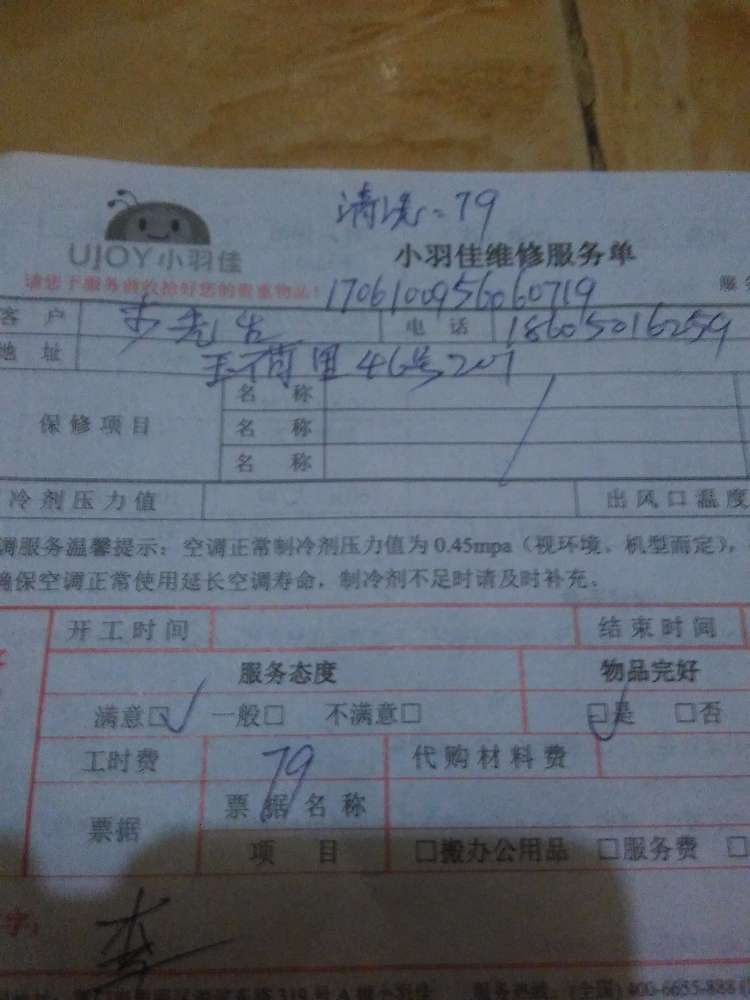 清洗：79
UJOY小羽佳
小羽佳维修服务单
请您于服务前收拾好您的贵重物品！
1706100956060719
客户 先生 电话 18605016259
地址 玉荷里46号207
保修项目
名称
名称
名称
冷剂压力值 出风口温度
调服务温馨提示：空调正常制冷剂压力值为0.45mpa（视环境、机型而定），
确保空调正常使用延长空调寿命，制冷剂不足时请及时补充。
开工时间 结束时间
服务态度 物品完好
满意□ 一般□ 不满意□ □是 □否
工时费 79 代购材料费
票据 票据名称
项目 □搬办公用品 □服务费 □
字：
319号A 小羽佳 服务热线：(全国)400-6655-888